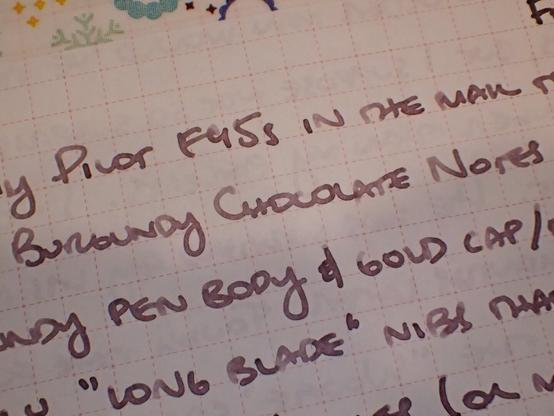 Pilot E95s in the mail
Burgundy Chocolate Notes
pen body & gold cap/
"long blade" nibs
(or